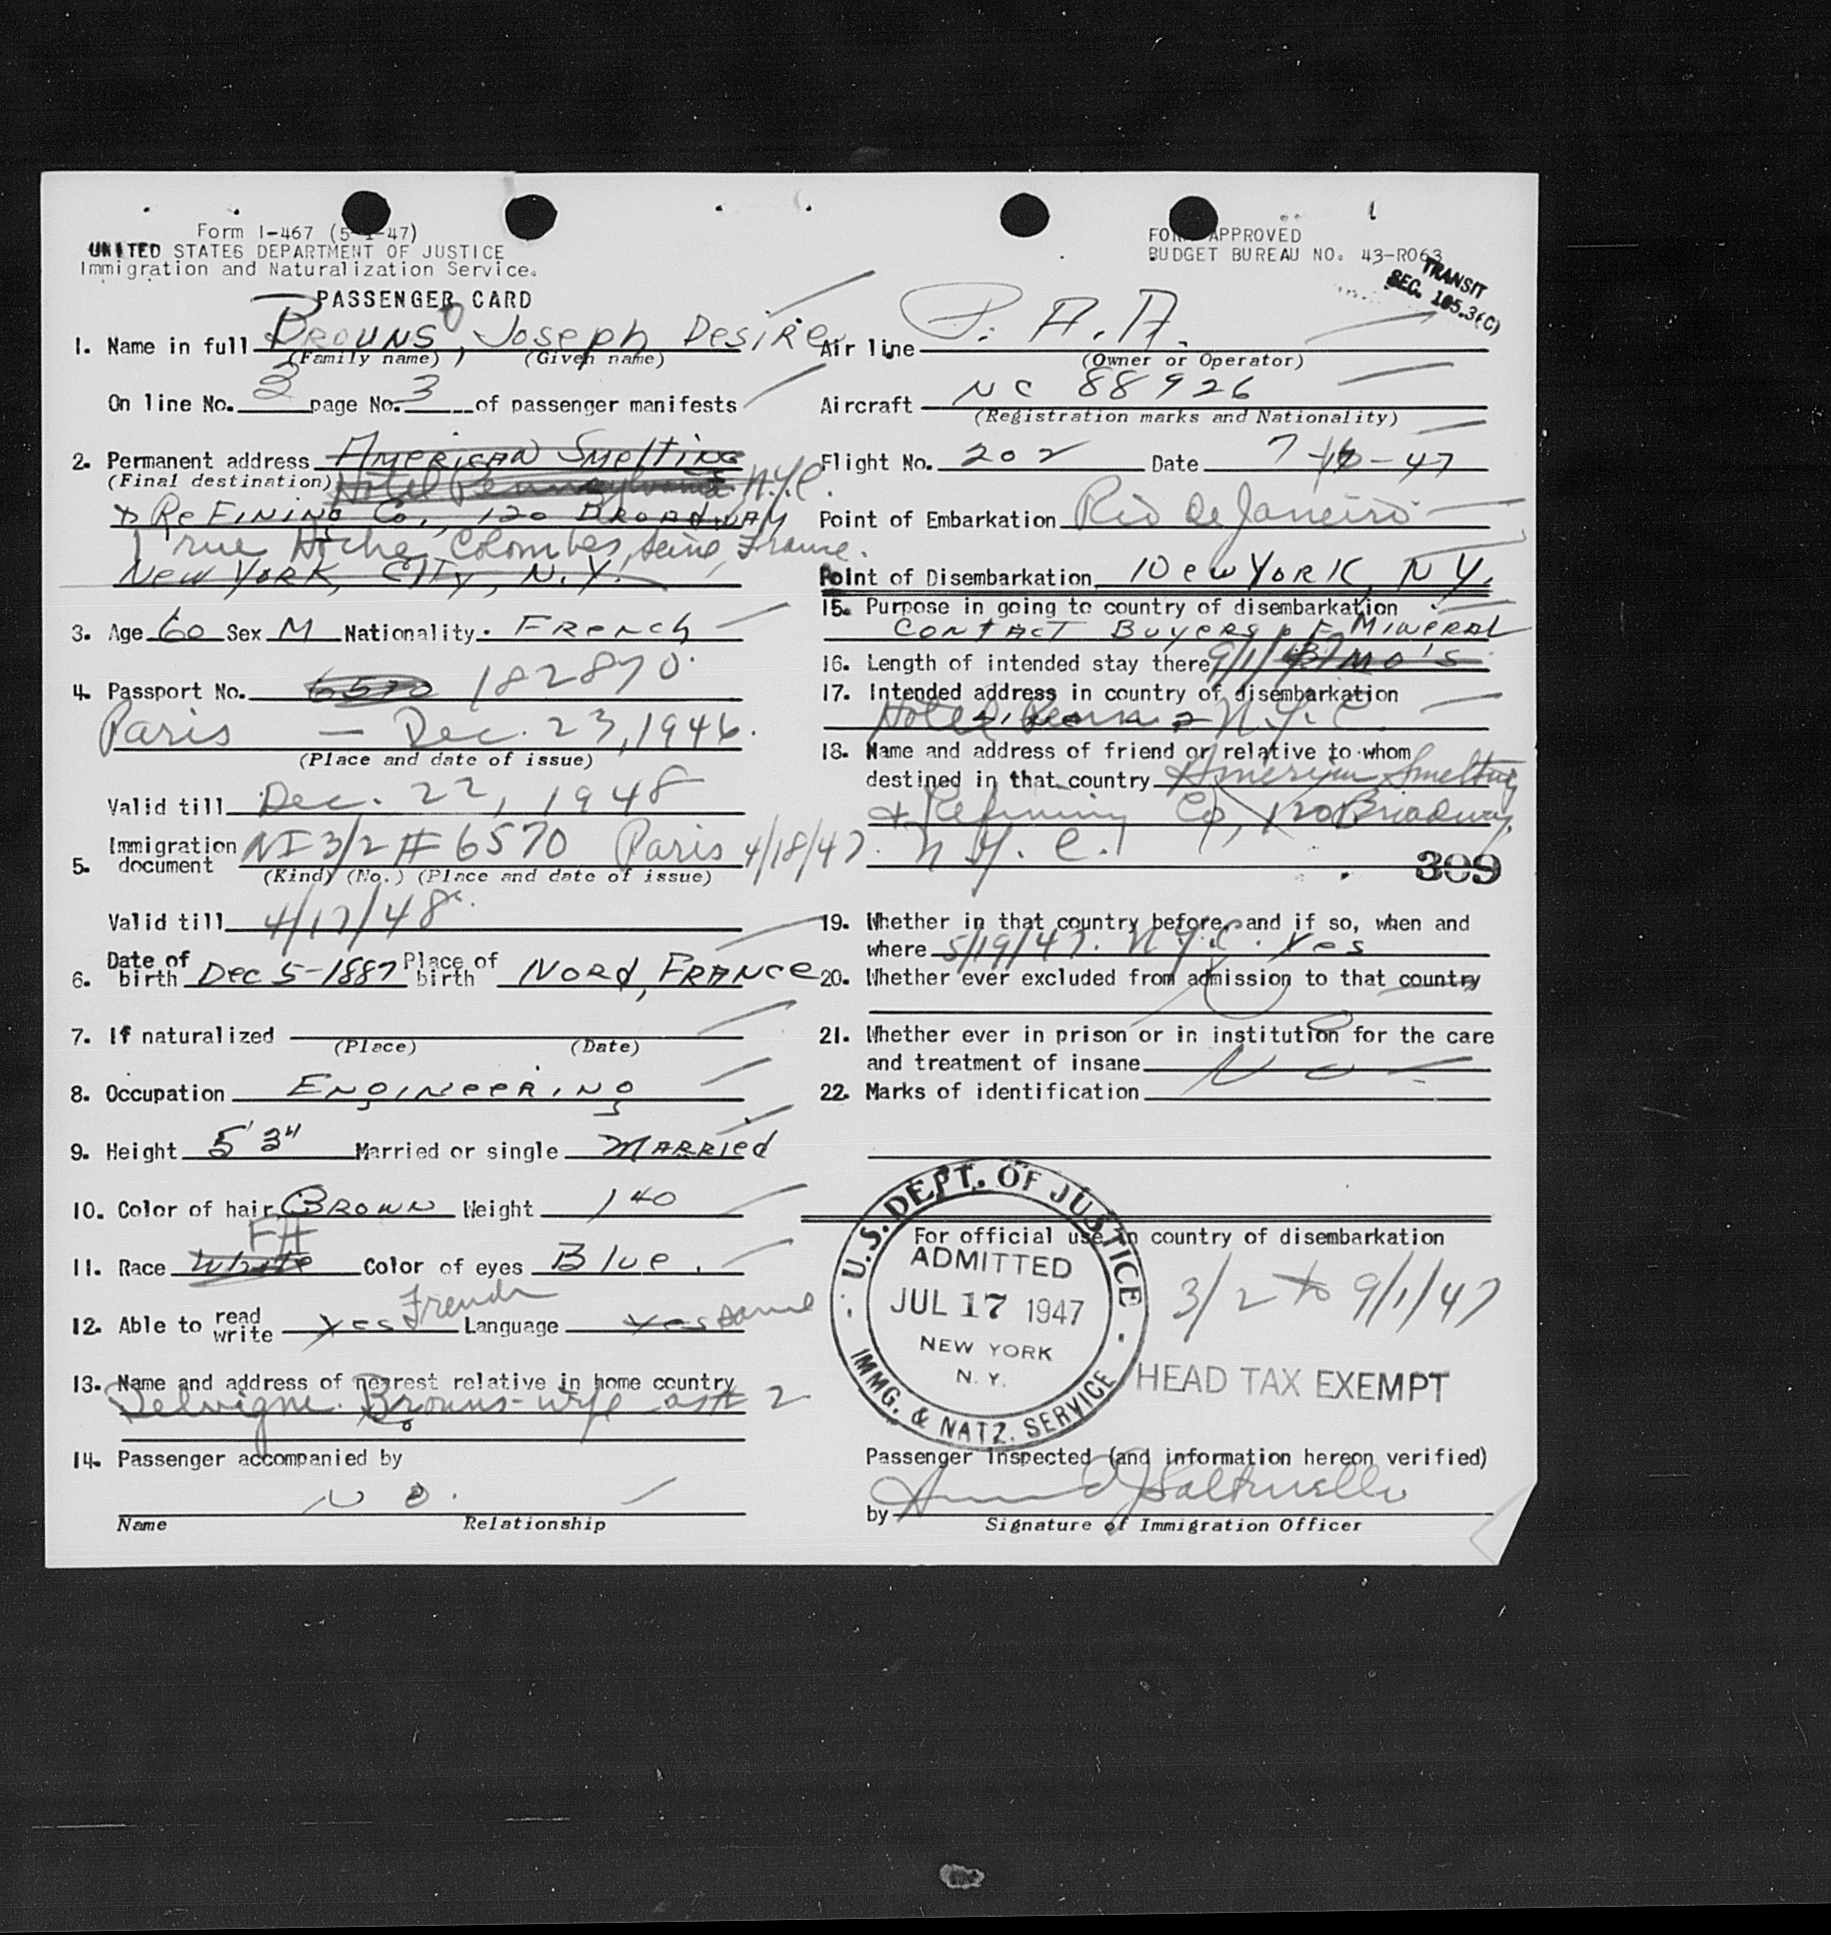 Form I-467 (5-1-47)
UNITED STATES DEPARTMENT OF JUSTICE
Immigration and Naturalization Service.
PASSENGER CARD
1. Name in full Brouns, Joseph Desire
(Family name) (Given name)
On line No. 2 page No. 3 of passenger manifests
2. Permanent address American Smelting
(Final destination) Hotel Pennsylvania N.Y.C.
& Refining Co., 120 Broadway
1 rue Hoche, Colombes, Seine, France.
New York, City, N.Y.
3. Age 60 Sex M Nationality French
4. Passport No. 6570 182870
Paris — Dec. 23, 1946.
(Place and date of issue)
Valid till Dec. 22, 1948
5. Immigration document NI 3/2 # 6570 Paris 4/18/47.
(Kind) (No.) (Place and date of issue)
Valid till 4/17/48
6. Date of birth Dec 5-1887 Place of birth Nord, France
7. If naturalized
(Place) (Date)
8. Occupation Engineering
9. Height 5'3" Married or single Married
10. Color of hair Brown Weight 140
FH
11. Race White Color of eyes Blue.
12. Able to read write Yes French Language Yes same
13. Name and address of nearest relative in home country
Delvigne Brouns - wife as # 2
14. Passenger accompanied by
No.
Name Relationship
FORM APPROVED
BUDGET BUREAU NO. 43-R063
TRANSIT
SEC. 165.3(C)
Air line P.A.A.
(Owner or Operator)
Aircraft NC 88926
(Registration marks and Nationality)
Flight No. 202 Date 7-16-47
Point of Embarkation Rio de Janeiro
Point of Disembarkation New York, N.Y.
15. Purpose in going to country of disembarkation
Contact Buyers of Mineral
16. Length of intended stay there 9/1/47 3 mo's
17. Intended address in country of disembarkation
Hotel Penn N.Y.C.
18. Name and address of friend or relative to whom
destined in that country American Smelting
& Refining Co, 120 Broadway,
N.Y.C.
309
19. Whether in that country before, and if so, when and
where 5/19/47. N.Y.C. Yes
20. Whether ever excluded from admission to that country
21. Whether ever in prison or in institution for the care
and treatment of insane No
22. Marks of identification
For official use in country of disembarkation
U.S. DEPT. OF JUSTICE
ADMITTED
JUL 17 1947
NEW YORK
N. Y.
IMMG. & NATZ. SERVICE
3/2 to 9/1/47
HEAD TAX EXEMPT
Passenger inspected (and information hereon verified)
by
Signature of Immigration Officer